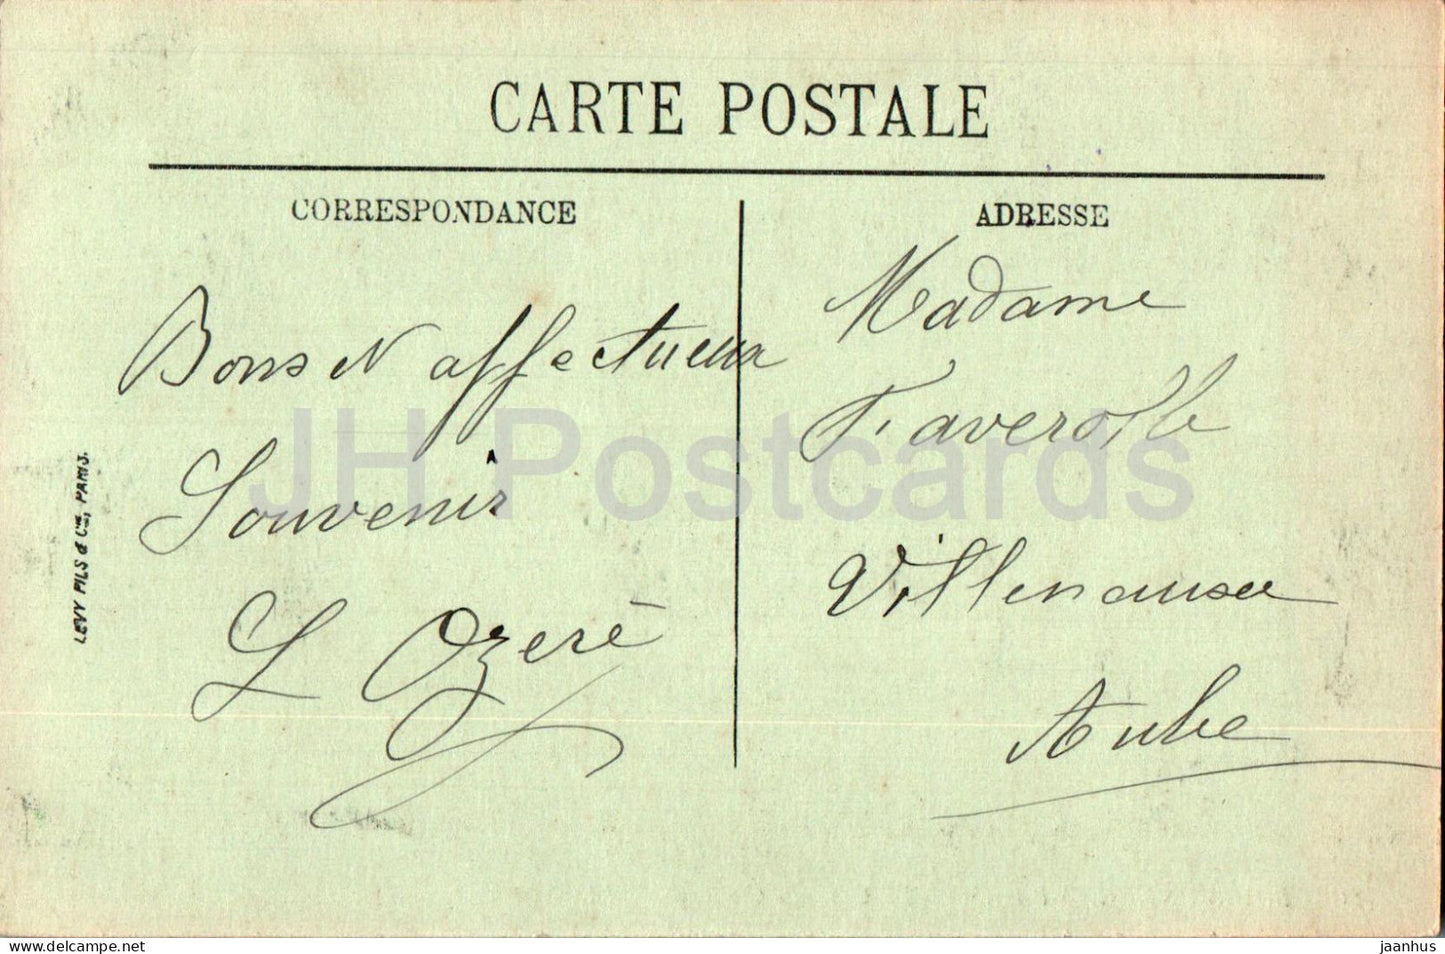 CARTE POSTALE
CORRESPONDANCE
Bons et affectueux
Souvenir
L Ozeré
ADRESSE
Madame
Faverolle
Villenauxe
Aube
LEVY FILS & Cie, PARIS.
JH Postcards
delcampe.net
jaanhus